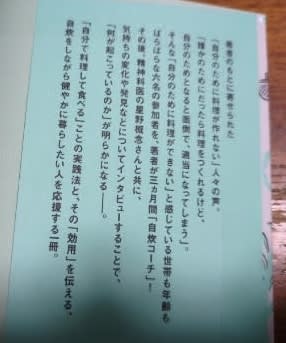 著者のもとに寄せられた
「自分のために料理が作れない」人々の声。
「誰かのためにだったら料理をつくれるけど、
自分のためとなると面倒で、適当になってしまう」。
そんな「自分のために料理ができない」と感じている世帯も年齢も
ばらばらな六名の参加者を、著者が三ヵ月間「自炊コーチ」！
その後、精神科医の星野概念さんと共に、
気持ちの変化や発見などについてインタビューすることで、
「何が起こっているのか」が明らかになる――。
「自分で料理して食べる」ことの実践法と、その「効用」を伝える、
自炊をしながら健やかに暮らしたい人を応援する一冊。